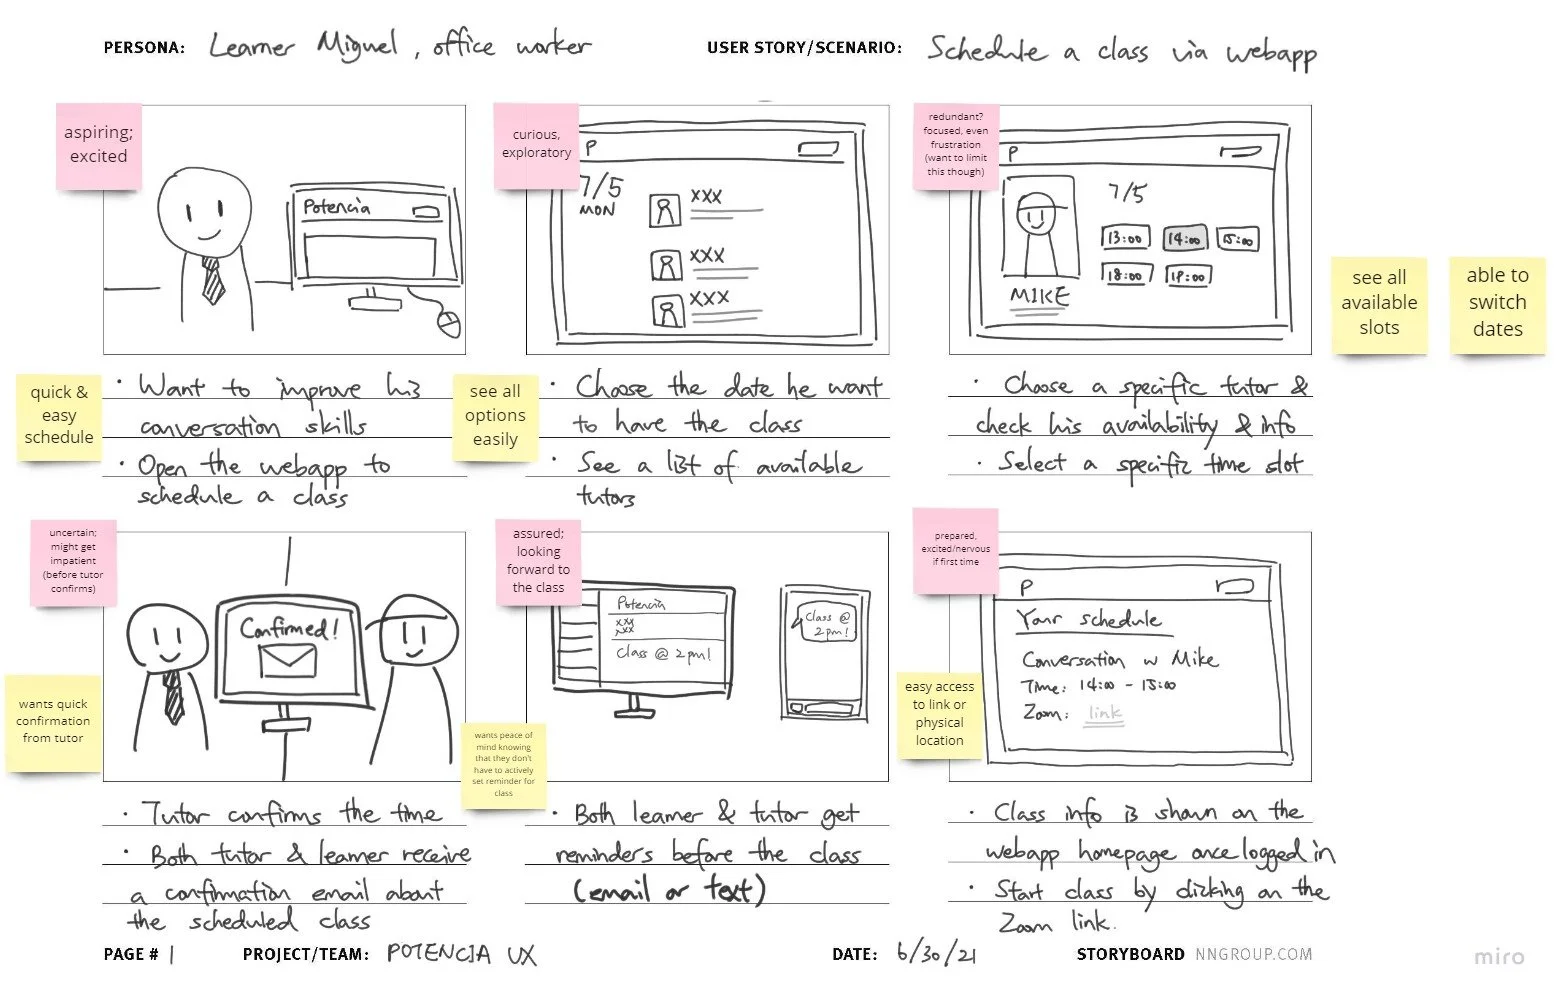 PERSONA: Learner Miguel, office worker
USER STORY/SCENARIO: Schedule a class via webapp
aspiring;
excited
Potencia
quick &
easy
schedule
• Want to improve his
conversation skills
• Open the webapp to
schedule a class
curious,
exploratory
P
7/5
MON
XXX
XXX
XXX
see all
options
easily
• Choose the date he want
to have the class
• See a list of available
tutors
redundant?
focused, even
frustration
(want to limit
this though)
P
7/5
13:00 14:00 15:00
18:00 19:00
MIKE
see all
available
slots
able to
switch
dates
• Choose a specific tutor &
check his availability & info
• Select a specific time slot
uncertain;
might get
impatient
(before tutor
confirms)
Confirmed!
wants quick
confirmation
from tutor
• Tutor confirms the time
• Both tutor & learner receive
a confirmation email about
the scheduled class
assured;
looking
forward to
the class
Potencia
XXX
XXX
Class @ 2pm!
Class @
2pm!
wants peace of
mind knowing
that they don't
have to actively
set reminder for
class
• Both learner & tutor get
reminders before the class
(email or text)
prepared,
excited/nervous
if first time
P
Your schedule
Conversation w Mike
Time: 14:00 - 15:00
Zoom: link
easy access
to link or
physical
location
• Class info is shown on the
webapp homepage once logged in
• Start class by clicking on the
Zoom link.
PAGE # 1
PROJECT/TEAM: POTENCIA UX
DATE: 6/30/21
STORYBOARD NNGROUP.COM
miro